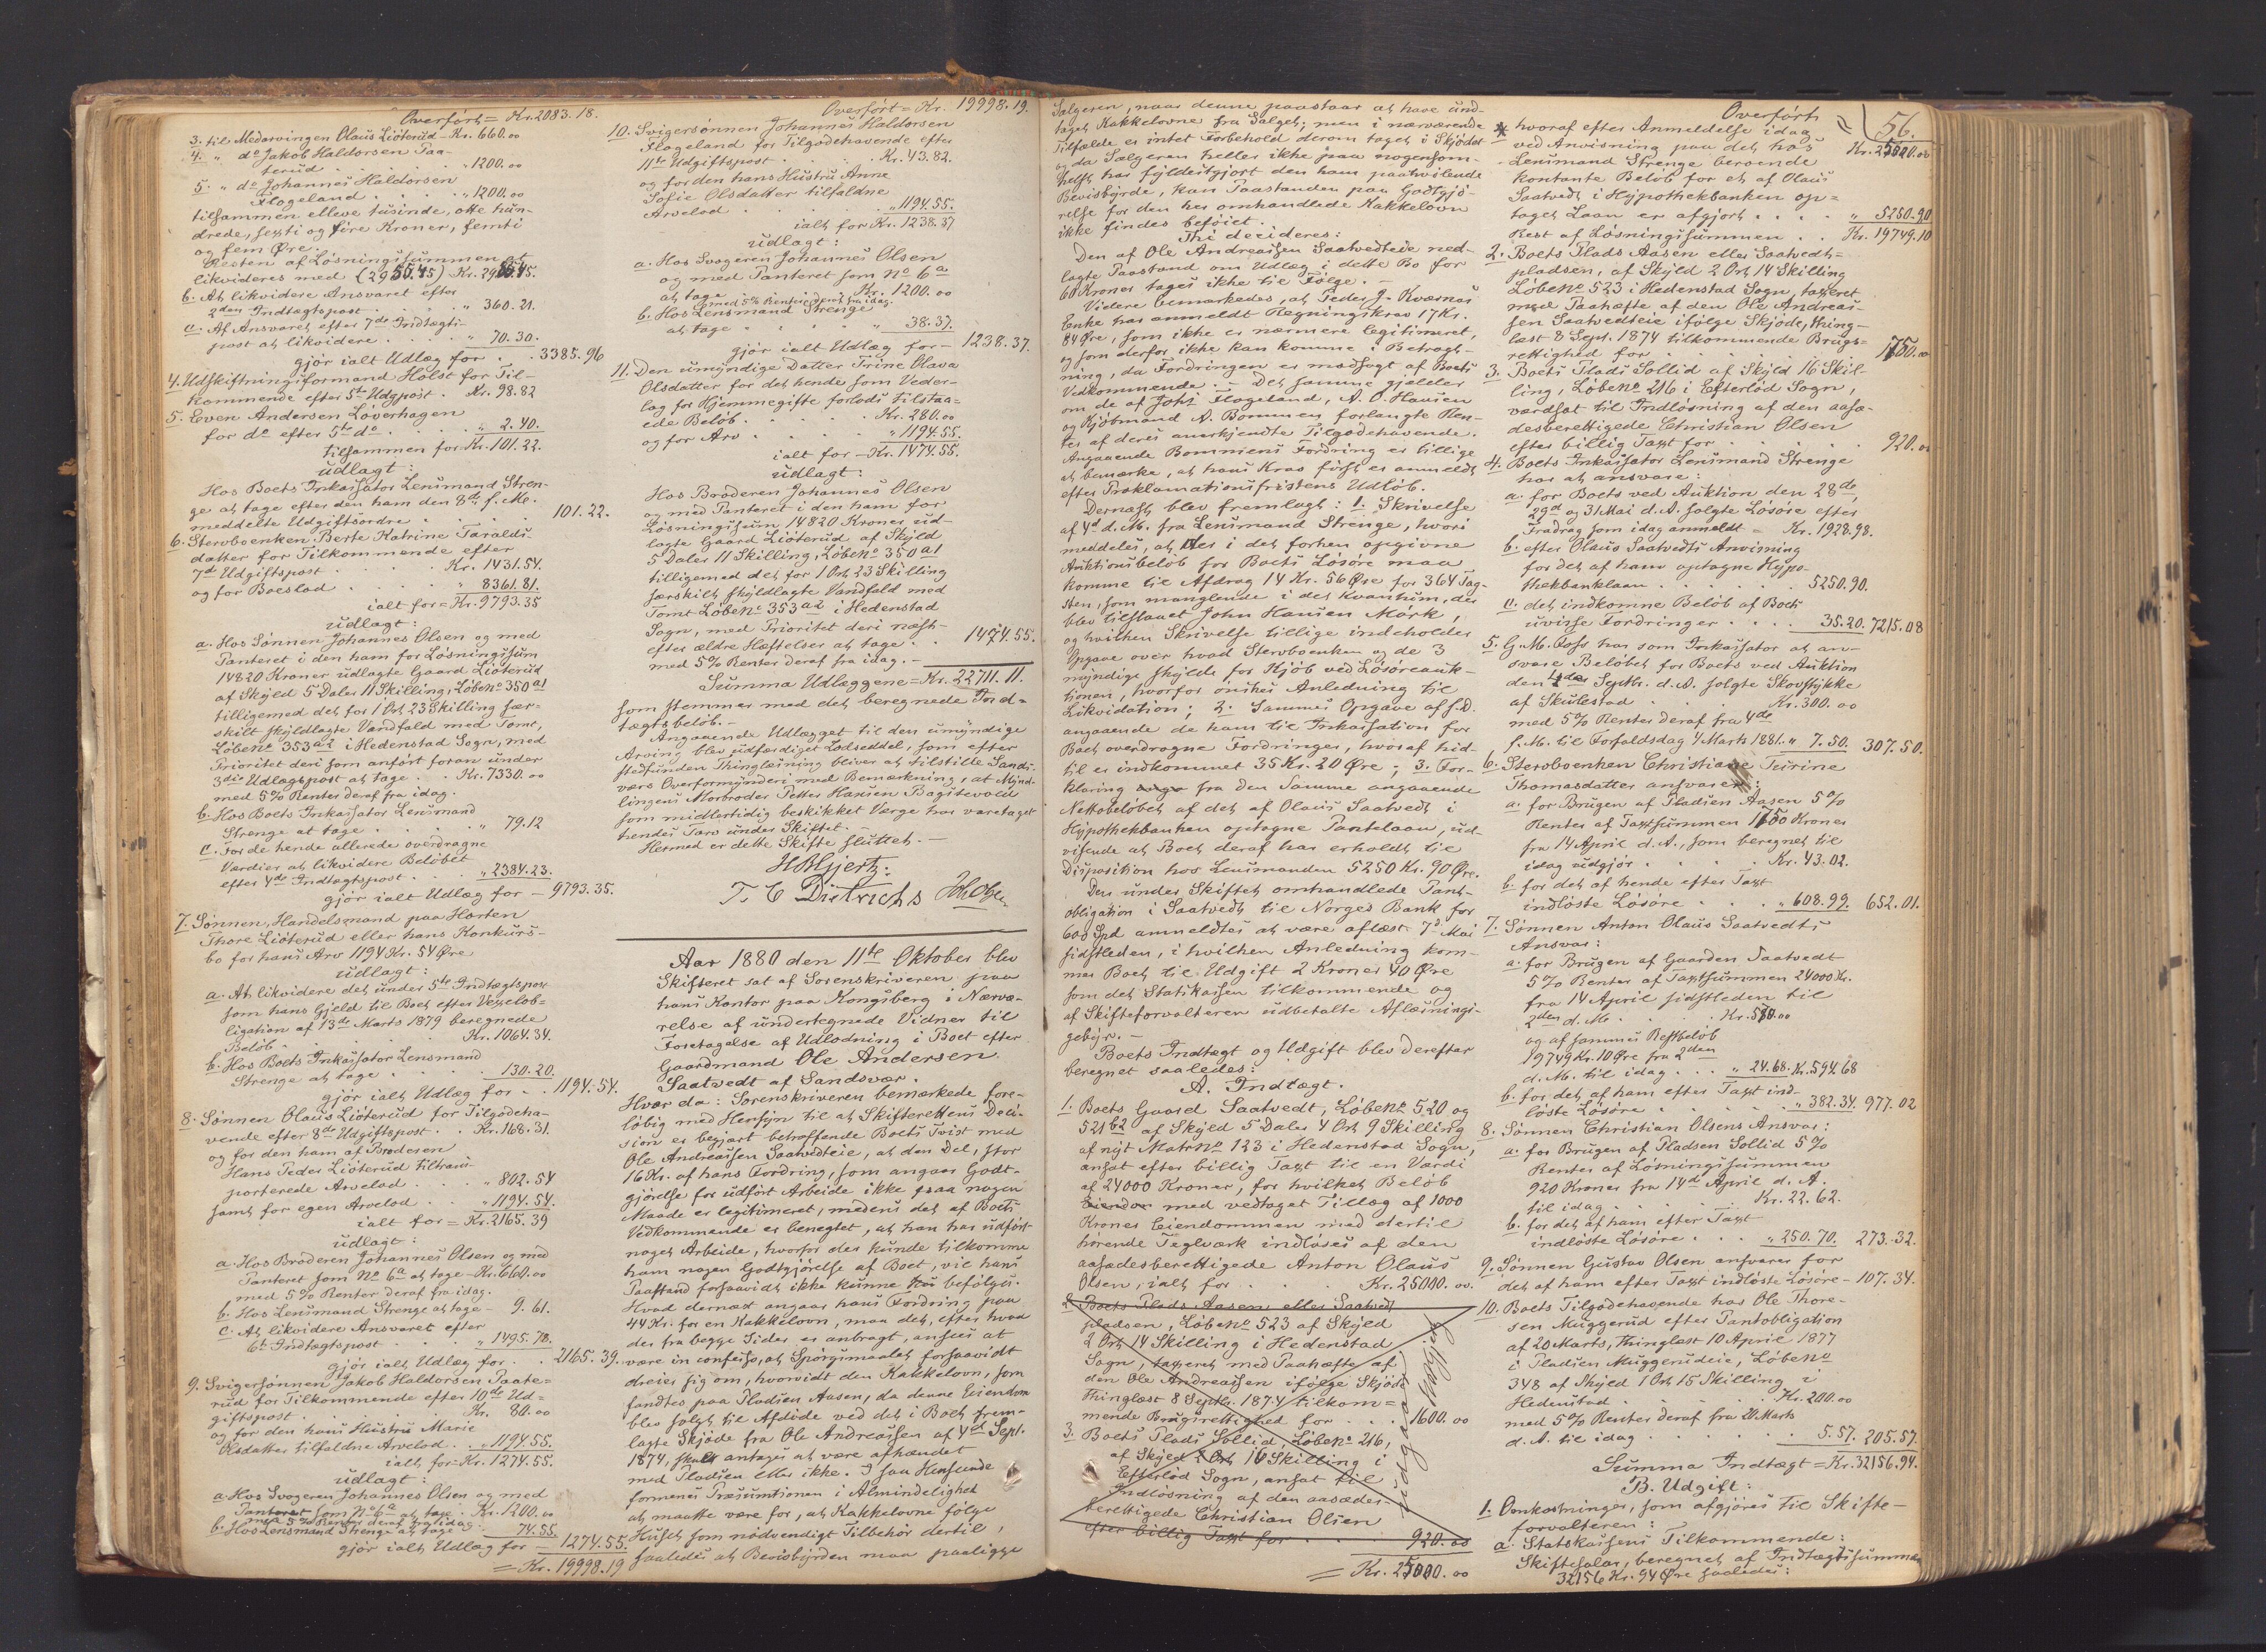 Overført = Kr. 2083.18.
3. til Medarvingen Olaus Liøterud - Kr. 660.00
4. " do Jakob Haldorsen Taa-
terud . . . . " 1200.00
5. " do Johannes Haldorsen
Flogeland . . . . " 1200.00
tilsammen elleve tusinde, otte hun-
drede, sexti og fire Kroner, femti
og fem Øre.
Resten af Løsningssummen at
likvideres med (2955.45) - Kr. 2955.45.
b. At likvidere Ansvaret efter
2den Indtægtspost . . . " 360.21.
c. Af Ansvaret efter 7de Indtægts-
post at likvidere . . . " 70.30.
gjør ialt Udlæg for . . 3385.96
4. Udskiftningsformand Holst for Til-
kommende efter 5te Udgpost . Kr. 98.82
5. Even Andersen Løverhagen
for do efter 5te do . . . " 2.40.
tilsammen for Kr. 101.22.
udlagt:
Hos Boets Inkassator Lensmand Stren-
ge at tage efter den ham den 8de f. M.
meddelte Udgiftsordre . . . 101.22.
6. Stervboenken Berte Katrine Taralds-
datter for Tilkommende efter
7de Udgiftspost . . . Kr. 1431.54.
og for Boeslod . . . " 8361.81.
ialt for = Kr. 9793.35
udlagt:
a. Hos Sønnen Johannes Olsen og med
Panteret i den ham for Løsningssum
14820 Kroner udlagte Gaard Liøterud
af Skyld 5 Daler 11 Skilling, Løbeno 350a1
tilligemed det for 1 Ort 23 Skilling sær-
skilt skyldlagte Vandfald med Tomt,
Løbeno 353a2 i Hedenstad Sogn, med
Prioritet deri som anført foran under
3die Udlægspost at tage . . Kr. 7330.00
med 5% Renter deraf fra idag.
b. Hos Boets Inkassator Lensmand
Strenge at tage . . . " 79.12
c. For de hende allerede overdragne
Værdier at likvidere Beløbet
efter 4de Indtægtspost . . . " 2384.23.
gjør ialt Udlæg for - 9793.35.
7. Sønnen, Handelsmand paa Horten
Thore Liøterud eller hans Konkurs-
bo for hans Arv 1194 Kr. 54 Øre
udlagt:
a. At likvidere det under 5te Indtægtspost
som hans Gjeld til Boet efter Vexelob-
ligation af 13de Marts 1879 beregnede
Beløb . . . . Kr. 1064.34.
b. Hos Boets Inkassator Lensmand
Strenge at tage . . . . 130.20.
gjør ialt Udlæg for . . 1194.54.
8. Sønnen Olaus Liøterud for Tilgodeha-
vende efter 8de Udgiftspost . . Kr. 168.31.
og for den ham af Broderen
Hans Peder Liøterud tiltrans-
porterede Arvelod . . . " 802.54
samt for egen Arvelod . . " 1194.54.
ialt for = Kr. 2165.39
udlagt:
a. Hos Broderen Johannes Olsen og med
Panteret som No 6a at tage - Kr. 660.00
med 5% Renter deraf fra idag.
b. Hos Lensmand Strenge at tage - 9.61.
c. At likvidere Ansvaret efter
6te Indtægtspost . . . " 1495.78.
gjør ialt Udlæg for . . 2165.39.
9. Svigersønnen Jakob Haldorsen Taate-
rud for Tilkommende efter 10de Ud-
giftspost . . . . Kr. 80.00
og for den hans Hustru Marie
Olsdatter tilfaldne Arvelod . . " 1194.55.
ialt for = Kr. 1274.55.
udlagt:
a. Hos Svogeren Johannes Olsen og med
Panteret som No 6a at tage . Kr. 1200.00
med 5% Renter deraf fra idag
b. Hos Lensmand Strenge at tage . 74.55
gjør ialt Udlæg for = 1274.55.
= Kr. 19998.19
Overført = Kr. 19998.19.
10. Svigersønnen Johannes Haldorsen
Flogeland for Tilgodehavende efter
11te Udgiftspost . . . Kr. 43.82.
og for den hans Hustru Anne
Sofie Olsdatter tilfaldne
Arvelod . . . . " 1194.55.
ialt for Kr. 1238.37
udlagt:
a. Hos Svogeren Johannes Olsen
og med Panteret som No 6a
at tage . . . . Kr. 1200.00
med 5% Renter deraf fra idag.
b. Hos Lensmand Strenge
at tage " " " " 38.37.
gjør ialt Udlæg for - 1238.37.
11. Den umyndige Datter Trine Olava
Olsdatter for det hende som Veder-
lag for Hjemmegifte forlods tilstaa-
ede Beløb . . . . Kr. 280.00
og for Arv . . . . " 1194.55.
ialt for - Kr. 1474.55.
udlagt:
Hos Broderen Johannes Olsen
og med Panteret i den ham for
Løsningssum 14820 Kroner ud-
lagte Gaard Liøterud af Skyld
5 Daler 11 Skilling, Løbeno 350a1
tilligemed det for 1 Ort 23 Skilling
særskilt skyldlagte Vandfald med
Tomt Løbeno 353a2 i Hedenstad
Sogn, med Prioritet deri næst
efter ældre Hæftelser at tage . . 1474.55.
med 5% Renter deraf fra idag. -
Summa Udlæggene = Kr. 22711.11.
som stemmer med det beregnede Ind-
tægtsbeløb. -
Angaaende Udlægget til den umyndige
Arving blev udfærdiget Lodseddel, som efter
stedfunden Thinglæsning bliver at tilstille Sands-
værs Overformynderi med Bemærkning, at Mynd-
lingens Morbroder Petter Hansen Bagstevold
som midlertidig beskikket Værge har varetaget
hendes Tarv under Skiftet. -
Hermed er dette Skifte sluttet. -
H. Hjertz.
T. C. Dietrichs
Aar 1880 den 11te Oktober blev
Skifteret sat af Sorenskriveren paa
hans Kontor paa Kongsberg i Nærvæ-
relse af undertegnede Vidner til
Foretagelse af Udlodning i Boet efter
Gaardmand Ole Andersen
Saatvedt af Sandsvær.
Hvor da: Sorenskriveren bemærkede fore-
løbig med Hensyn til at Skifterettens Deci-
sion er begjært betræffende Boets Tvist med
Ole Andreassen Saatvedteie, at den Del, stor
16 Kr. af hans Fordring, som angaar Godt-
gjørelse for udført Arbeide ikke paa nogen
Maade er legitimeret, medens det af Boets
Vedkommende er benegtet, at han har udført
noget Arbeide, hvorfor der kunde tilkomme
ham nogen Godtgjørelse af Boet, vil hans
Paastand forsaavidt ikke kunne befølges.
Hvad dernæst angaar hans Fordring paa
44 Kr. for en Kakkelovn, maa det, efter hvad
der fra begge Sider er anbragt, ansees at
være in confesso, at Spørgsmaalet forsaavidt
dreier sig om, hvorvidt den Kakkelovn, som
fandtes paa Pladsen Aasen, da denne Eiendom
blev solgt til Afdøde ved det i Boet frem-
lagte Skjøde fra Ole Andreassen af 4de Sept.
1874, skulde antages at være afhændet
med Pladsen eller ikke. I saa Henseende
formenes Præsumtionen i Almindelighed
at maatte være for, at Kakkelovne følge
Huset som nødvendigt Tilbehør dertil,
saaledes at Bevisbyrden maa paaligge
Sælgeren, naar denne paastaar at have und-
taget Kakkelovne fra Salget; men i nærværende
Tilfælde er intet Forbehold derom taget i Skjødet
og da Sælgeren heller ikke paa nogensom-
helst har fyldestgjort den ham paahvilende
Bevisbyrde, kan Paastanden paa Godtgjø-
relse for den her omhandlede Kakkelovn
ikke findes beføiet.
Thi decideres:
Den af Ole Andreassen Saatvedteie ned-
lagte Paastand om Udlæg i dette Bo for
60 Kroner tages ikke til Følge. -
Videre bemærkedes, at Peder J. Kværnæs
Enke har anmeldt Regningskrav 17 Kr.
84 Øre, som ikke er nærmere legitimeret,
og som derfor ikke kan komme i Betragt-
ning, da Fordringen er modsagt af Boets
Vedkommende. - Det samme gjælder
om de af Johs Flogeland, A. O. Hansen
og Kjøbmand A. Bommen forlangte Ren-
ter af deres anerkjendte Tilgodehavende.
Angaaende Bommens Fordring er tillige
at bemærke, at hans Krav først er anmeldt
efter Proklamationsfristens Udløb.
Dernæst blev fremlagt: 1. Skrivelse
af 4de d. M. fra Lensmand Strenge, hvori
meddeles, at der i det forhen opgivne
Auktionsbeløb for Boets Løsøre maa
komme til Afdrag 14 Kr. 56 Øre for 364 Tag-
sten, som manglende i det Kvantum, der
blev tilslaaet John Hansen Mørk,
og hvilken Skrivelse tillige indeholder
Opgave over hvad Stervboenken og de 3
myndige skylde for Kjøb ved Løsøreauk-
tionen, hvorfor ønskes Anledning til
Likvidation; 2. Sammes Opgave af s. D.
angaaende de ham til Inkassation for
Boet overdragne Fordringer, hvoraf hid-
til er indkommet 35 Kr. 20 Øre; 3. For-
klaring fra den Samme angaaende
Nettobeløbet af det af Olaus Saatvedt i
Hypothekbanken optagne Pantelaan, ud-
visende at Boet deraf har erholdt til
Disposition hos Lensmanden 5250 Kr. 90 Øre.
Den under Skiftet omhandlede Pant-
obligation i Saatvedt til Norges Bank for
600 Spd anmeldtes at være aflæst 7de Mai
sidstleden, i hvilken Anledning kom-
mer Boet til Udgift 2 Kroner 40 Øre
som det Statskassen tilkommende og
af Skifteforvalteren udbetalte Aflæsnings-
gebyr. -
Boets Indtægt og Udgift blev derefter
beregnet saaledes:
A. Indtægt.
1. Boets Gaard Saatvedt, Løbeno 520 og
521b2 af Skyld 5 Daler 4 Ort 9 Skilling
af nyt Matrno 123 i Hedenstad Sogn,
ansat efter billig Taxt til en Værdi
af 24000 Kroner, for hvilket Beløb
Eiendom med vedtaget Tillæg af 1000
Kroner Eiendommen med dertil
hørende Teglværk indløses af den
aasædesberettigede Anton Olaus
Olsen, ialt for . . . Kr. 25000.00.
2. Boets Plads Aasen eller Saatvedt
pladsen, Løbeno 523 af Skyld
2 Ort 14 Skilling i Hedenstad
Sogn, taxeret med Paahæfte af
den Ole Andreassen ifølge Skjøde
Thinglæst 8 Septbr. 1874 tilkom-
mende Brugsrettighed for . . 1600.00
3. Boets Plads Sollid, Løbeno 216,
af Skyld 2 Ort 16 Skilling i
Efterlød Sogn, ansat til
Indløsning af den aasædes-
berettigede Christian Olsen
efter billig Taxt for . . . 920.00
udgaar
= Kr. 25000.00
56.
Overført = Kr. 25000.00
* hvoraf efter Anmeldelse idag
ved Anvisning paa det hos
Lensmand Strenge beroende
kontante Beløb for et af Olaus
Saatvedt i Hypothekbanken op-
taget Laan er afgjort . . . " 5250.90
Rest af Løsningssummen . . Kr. 19749.10
2. Boets Plads Aasen eller Saatvedt-
pladsen, af Skyld 2 Ort 14 Skilling
Løbeno 523 i Hedenstad Sogn, taxeret
med Paahæfte af den Ole Andreas-
sen Saatvedteie ifølge Skjøde, thing-
læst 8 Sept. 1874 tilkommende Brugs-
rettighed for . . . . 1750.00
3. Boets Plads Sollid af Skyld 16 Skil-
ling, Løbeno 216 i Efterlød Sogn,
værdsat til Indløsning af den aasæ-
desberettigede Christian Olsen
efter billig Taxt for . . . . 920.00
4. Boets Inkassator Lensmand Strenge
har at ansvare:
a. for Boets ved Auktion den 28de,
29de og 31 Mai d. A. solgte Løsøre efter
Fradrag som idag anmeldt = Kr. 1928.98.
b. efter Olaus Saatvedts Anvisning
for det af ham optagne Hypo-
thekbanklaan . . . . 5250.90.
c. det indkomne Beløb af Boets
uvisse Fordringer . . . . 35.20. 7215.08
5. G. M. Foss har som Inkassator at an-
svare Beløbet for Boets ved Auktion
den 4de Septbr. d. A. solgte Skovstykke
af Skulestad . . . Kr. 300.00
med 5% Renter deraf fra 4de
f. M. til Forfaldsdag 4 Marts 1881. " 7.50. 307.50.
6. Stervboenken Christiane Turine
Thomasdatter ansvarer:
a. for Brugen af Pladsen Aasen 5%
Renter af Taxtsummen 1750 Kroner
fra 14 April d. A., som beregnet til
idag udgjør . . . . Kr. 43.02.
b. for det af hende efter Taxt
indløste Løsøre . . . " 608.99. 652.01.
7. Sønnen Anton Olaus Saatvedts
Ansvar:
a. for Brugen af Gaarden Saatvedt
5% Renter af Taxtsummen 24000 Kr.
fra 14 April sidstleden til
2den d. M. . . . Kr. 570.00
og af sammes Restbeløb
19749 Kr. 10 Øre fra 2den
d. M. til idag . . . " 24.68. Kr. 594.68
b. for det af ham efter Taxt ind-
løste Løsøre . . . " 382.34 977.02
8. Sønnen Christian Olsens Ansvar:
a. for Brugen af Pladsen Sollid 5%
Renter af Løsningssummen
920 Kroner fra 14de April d. A.
til idag . . . . Kr. 22.62.
b. for det af ham efter Taxt
indløste Løsøre . . . " 250.70. 273.32.
9. Sønnen Gustav Olsen ansvarer for
det af ham efter Taxt indløste Løsøre - 107.34.
10. Boets Tilgodehavende hos Ole Thore-
sen Muggerud efter Pantobligation
af 20 Marts, Thinglæst 10 April 1877
i Pladsen Muggerudeie, Løbeno
348 af Skyld 1 Ort 15 Skilling i
Hedenstad . . . . Kr. 200.00
med 5% Renter deraf fra 20 Marts
d. A. til idag . . . . 5.57. 205.57.
Summa Indtægt = Kr. 32156.94.
B. Udgift:
1. Omkostninger, som afgjøres til Skifte-
forvalteren:
a. Statskassens Tilkommende:
Skiftesalær, beregnet af Indtægtssummen
32156 Kr. 94 Øre saaledes: